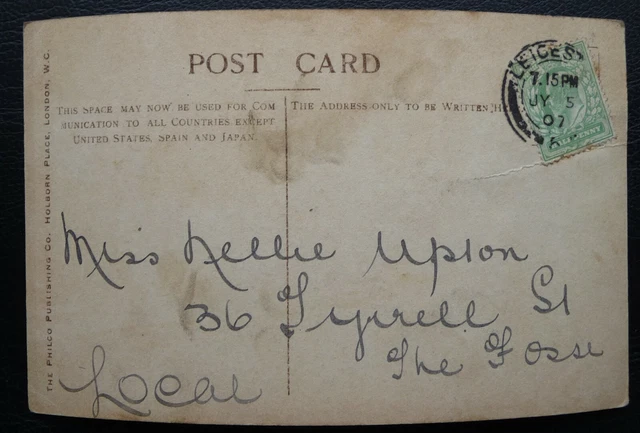 POST CARD
THIS SPACE MAY NOW BE USED FOR COM
MUNICATION TO ALL COUNTRIES EXCEPT
UNITED STATES, SPAIN AND JAPAN.
THE ADDRESS ONLY TO BE WRITTEN HE
THE PHILCO PUBLISHING CO. HOLBORN PLACE, LONDON, W.C.
LEICES
7.15 PM
JY 5
07
PENNY
Miss Nellie Upton
36 Tyrrell St
The Fosse
Local